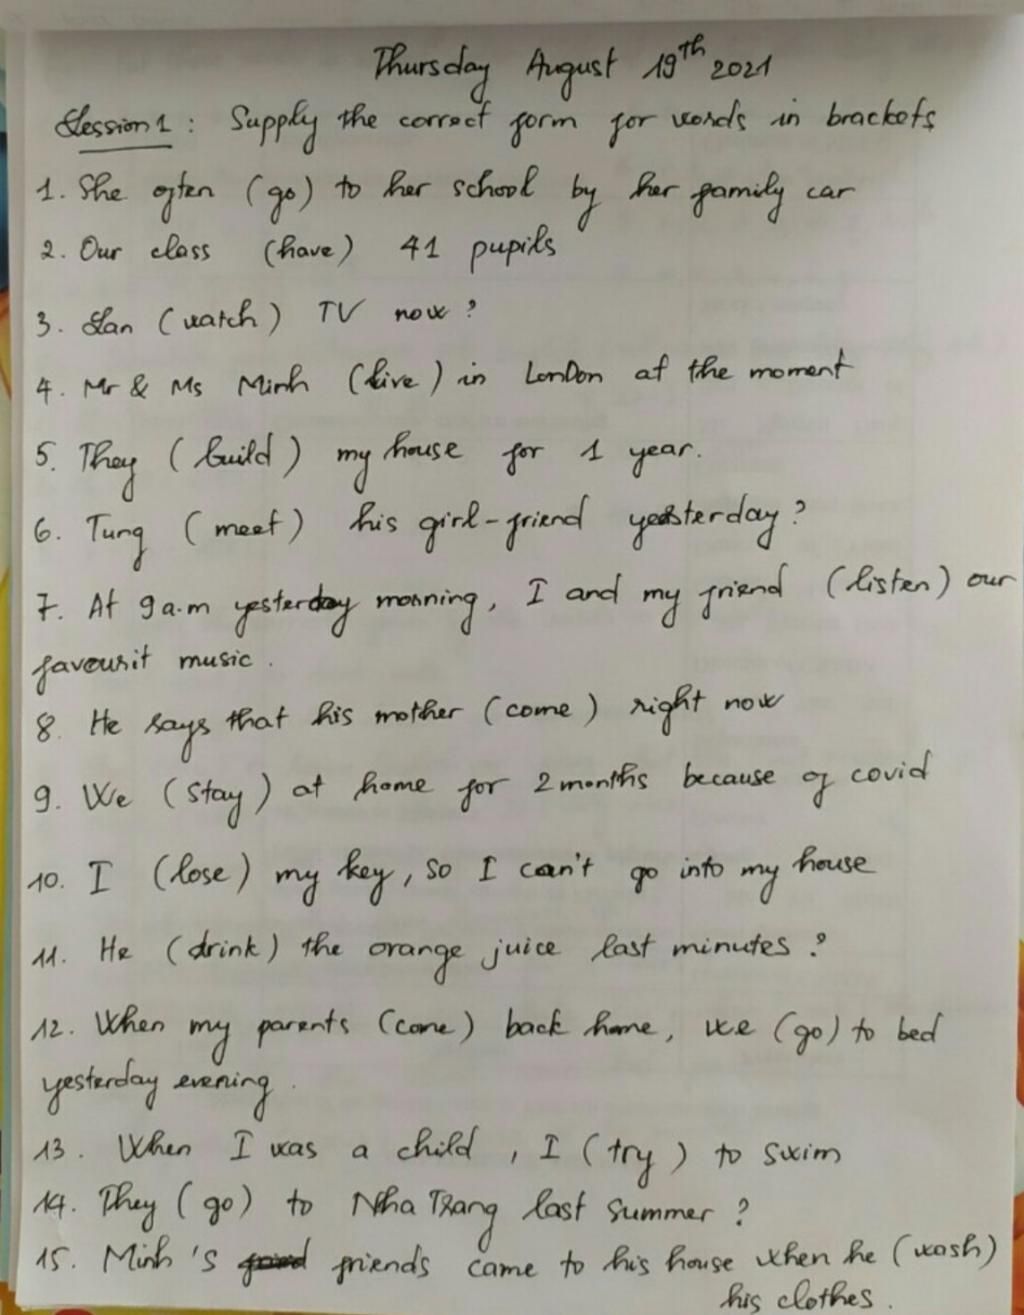 Thursday August 19th 2021
Session 1 : Supply the correct form for words in brackets
1. She often (go) to her school by her family car
2. Our class (have) 41 pupils
3. Lan (watch) TV now ?
4. Mr & Ms Minh (live) in London at the moment
5. They (build) my house for 1 year.
6. Tung (meet) his girl-friend yesterday ?
7. At 9 a.m yesterday morning, I and my friend (listen) our
favourit music .
8. He says that his mother (come) right now
9. We (stay) at home for 2 months because of covid
10. I (lose) my key, so I can't go into my house
11. He (drink) the orange juice last minutes ?
12. When my parents (come) back home, we (go) to bed
yesterday evening .
13. When I was a child , I (try) to swim
14. They (go) to Nha Trang last summer ?
15. Minh 's friends came to his house when he (wash)
his clothes .